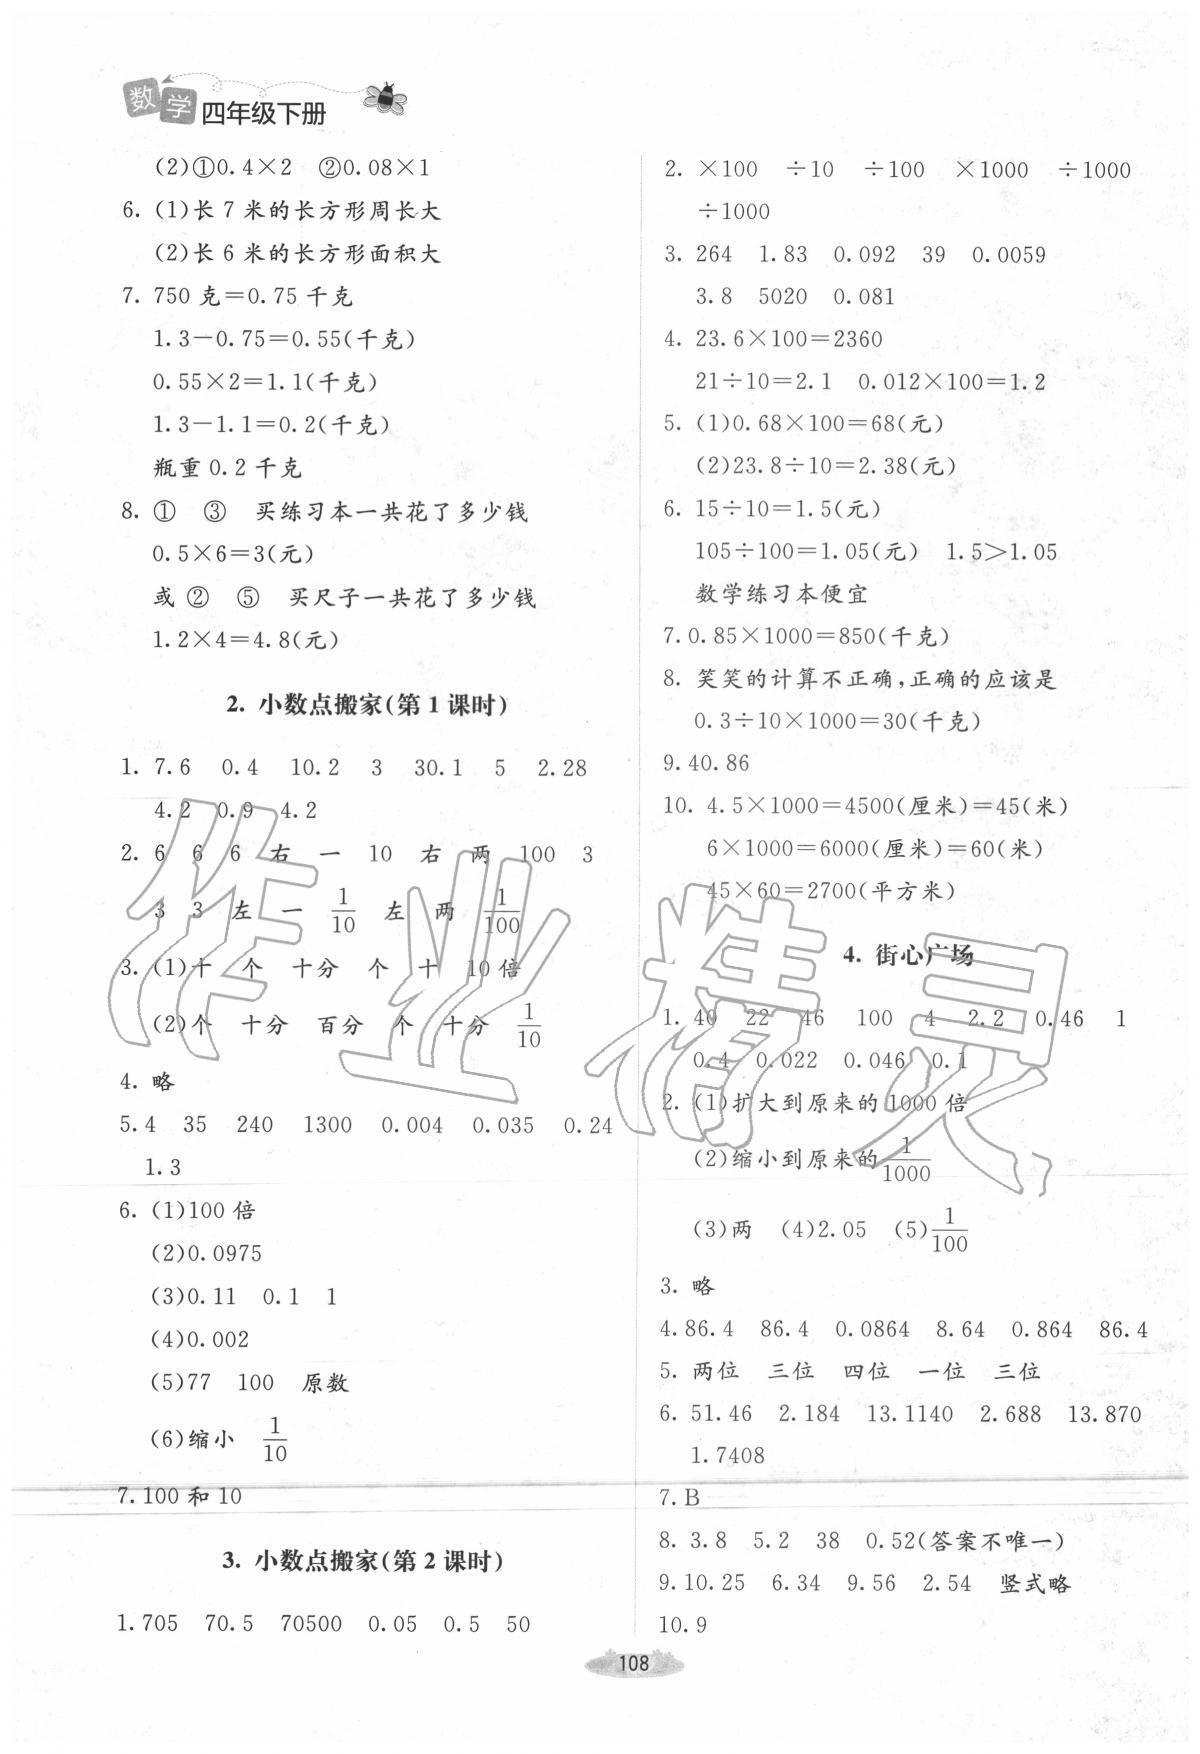 数学四年级下册
(2)①0.4×2 ②0.08×1
6. (1)长 7 米的长方形周长大
(2)长 6 米的长方形面积大
7. 750 克=0.75 千克
1.3-0.75=0.55(千克)
0.55×2=1.1(千克)
1.3-1.1=0.2(千克)
瓶重 0.2 千克
8. ① ③ 买练习本一共花了多少钱
0.5×6=3(元)
或 ② ⑤ 买尺子一共花了多少钱
1.2×4=4.8(元)
2. 小数点搬家(第 1 课时)
1. 7.6 0.4 10.2 3 30.1 5 2.28
4.2 0.9 4.2
2. 6 6 6 右 一 10 右 两 100 3
3 3 左 一 1/10 左 两 1/100
3. (1)十 个 十分 个 十 10 倍
(2)个 十分 百分 个 十分 1/10
4. 略
5.4 35 240 1300 0.004 0.035 0.24
1.3
6. (1)100 倍
(2)0.0975
(3)0.11 0.1 1
(4)0.002
(5)77 100 原数
(6)缩小 1/10
7.100 和 10
3. 小数点搬家(第 2 课时)
1.705 70.5 70500 0.05 0.5 50
2. ×100 ÷10 ÷100 ×1000 ÷1000
÷1000
3. 264 1.83 0.092 39 0.0059
3.8 5020 0.081
4. 23.6×100=2360
21÷10=2.1 0.012×100=1.2
5. (1)0.68×100=68(元)
(2)23.8÷10=2.38(元)
6. 15÷10=1.5(元)
105÷100=1.05(元) 1.5>1.05
数学练习本便宜
7.0.85×1000=850(千克)
8. 笑笑的计算不正确,正确的应该是
0.3÷10×1000=30(千克)
9.40.86
10. 4.5×1000=4500(厘米)=45(米)
6×1000=6000(厘米)=60(米)
45×60=2700(平方米)
4. 街心广场
1. 40 22 46 100 4 2.2 0.46 1
0.4 0.022 0.046 0.1
2. (1)扩大到原来的 1000 倍
(2)缩小到原来的 1/1000
(3)两 (4)2.05 (5)1/100
3. 略
4.86.4 86.4 0.0864 8.64 0.864 86.4
5. 两位 三位 四位 一位 三位
6. 51.46 2.184 13.1140 2.688 13.870
1.7408
7. B
8. 3.8 5.2 38 0.52(答案不唯一)
9.10.25 6.34 9.56 2.54 竖式略
10.9
108
作业精灵